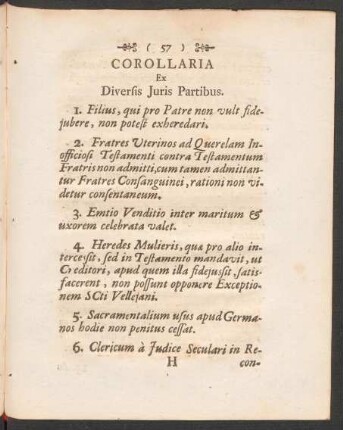 ( 57 )
COROLLARIA
Ex
Diversis Juris Partibus.
1. Filius, qui pro Patre non vult fide-
jubere, non potest exheredari.
2. Fratres Uterinos ad Querelam In-
officiosi Testamenti contra Testamentum
Fratris non admitti, cum tamen admittan-
tur Fratres Consanguinei, rationi non vi-
detur consentaneum.
3. Emtio Venditio inter maritum &
uxorem celebrata valet.
4. Heredes Mulieris, quæ pro alio in-
tercessit, sed in Testamento mandavit, ut
Creditori, apud quem illa fidejussit, satis-
facerent, non possunt opponere Exceptio-
nem SCti Vellejani.
5. Sacramentalium usus apud Germa-
nos hodie non penitus cessat.
6. Clericum à Judice Seculari in Re-
H con-